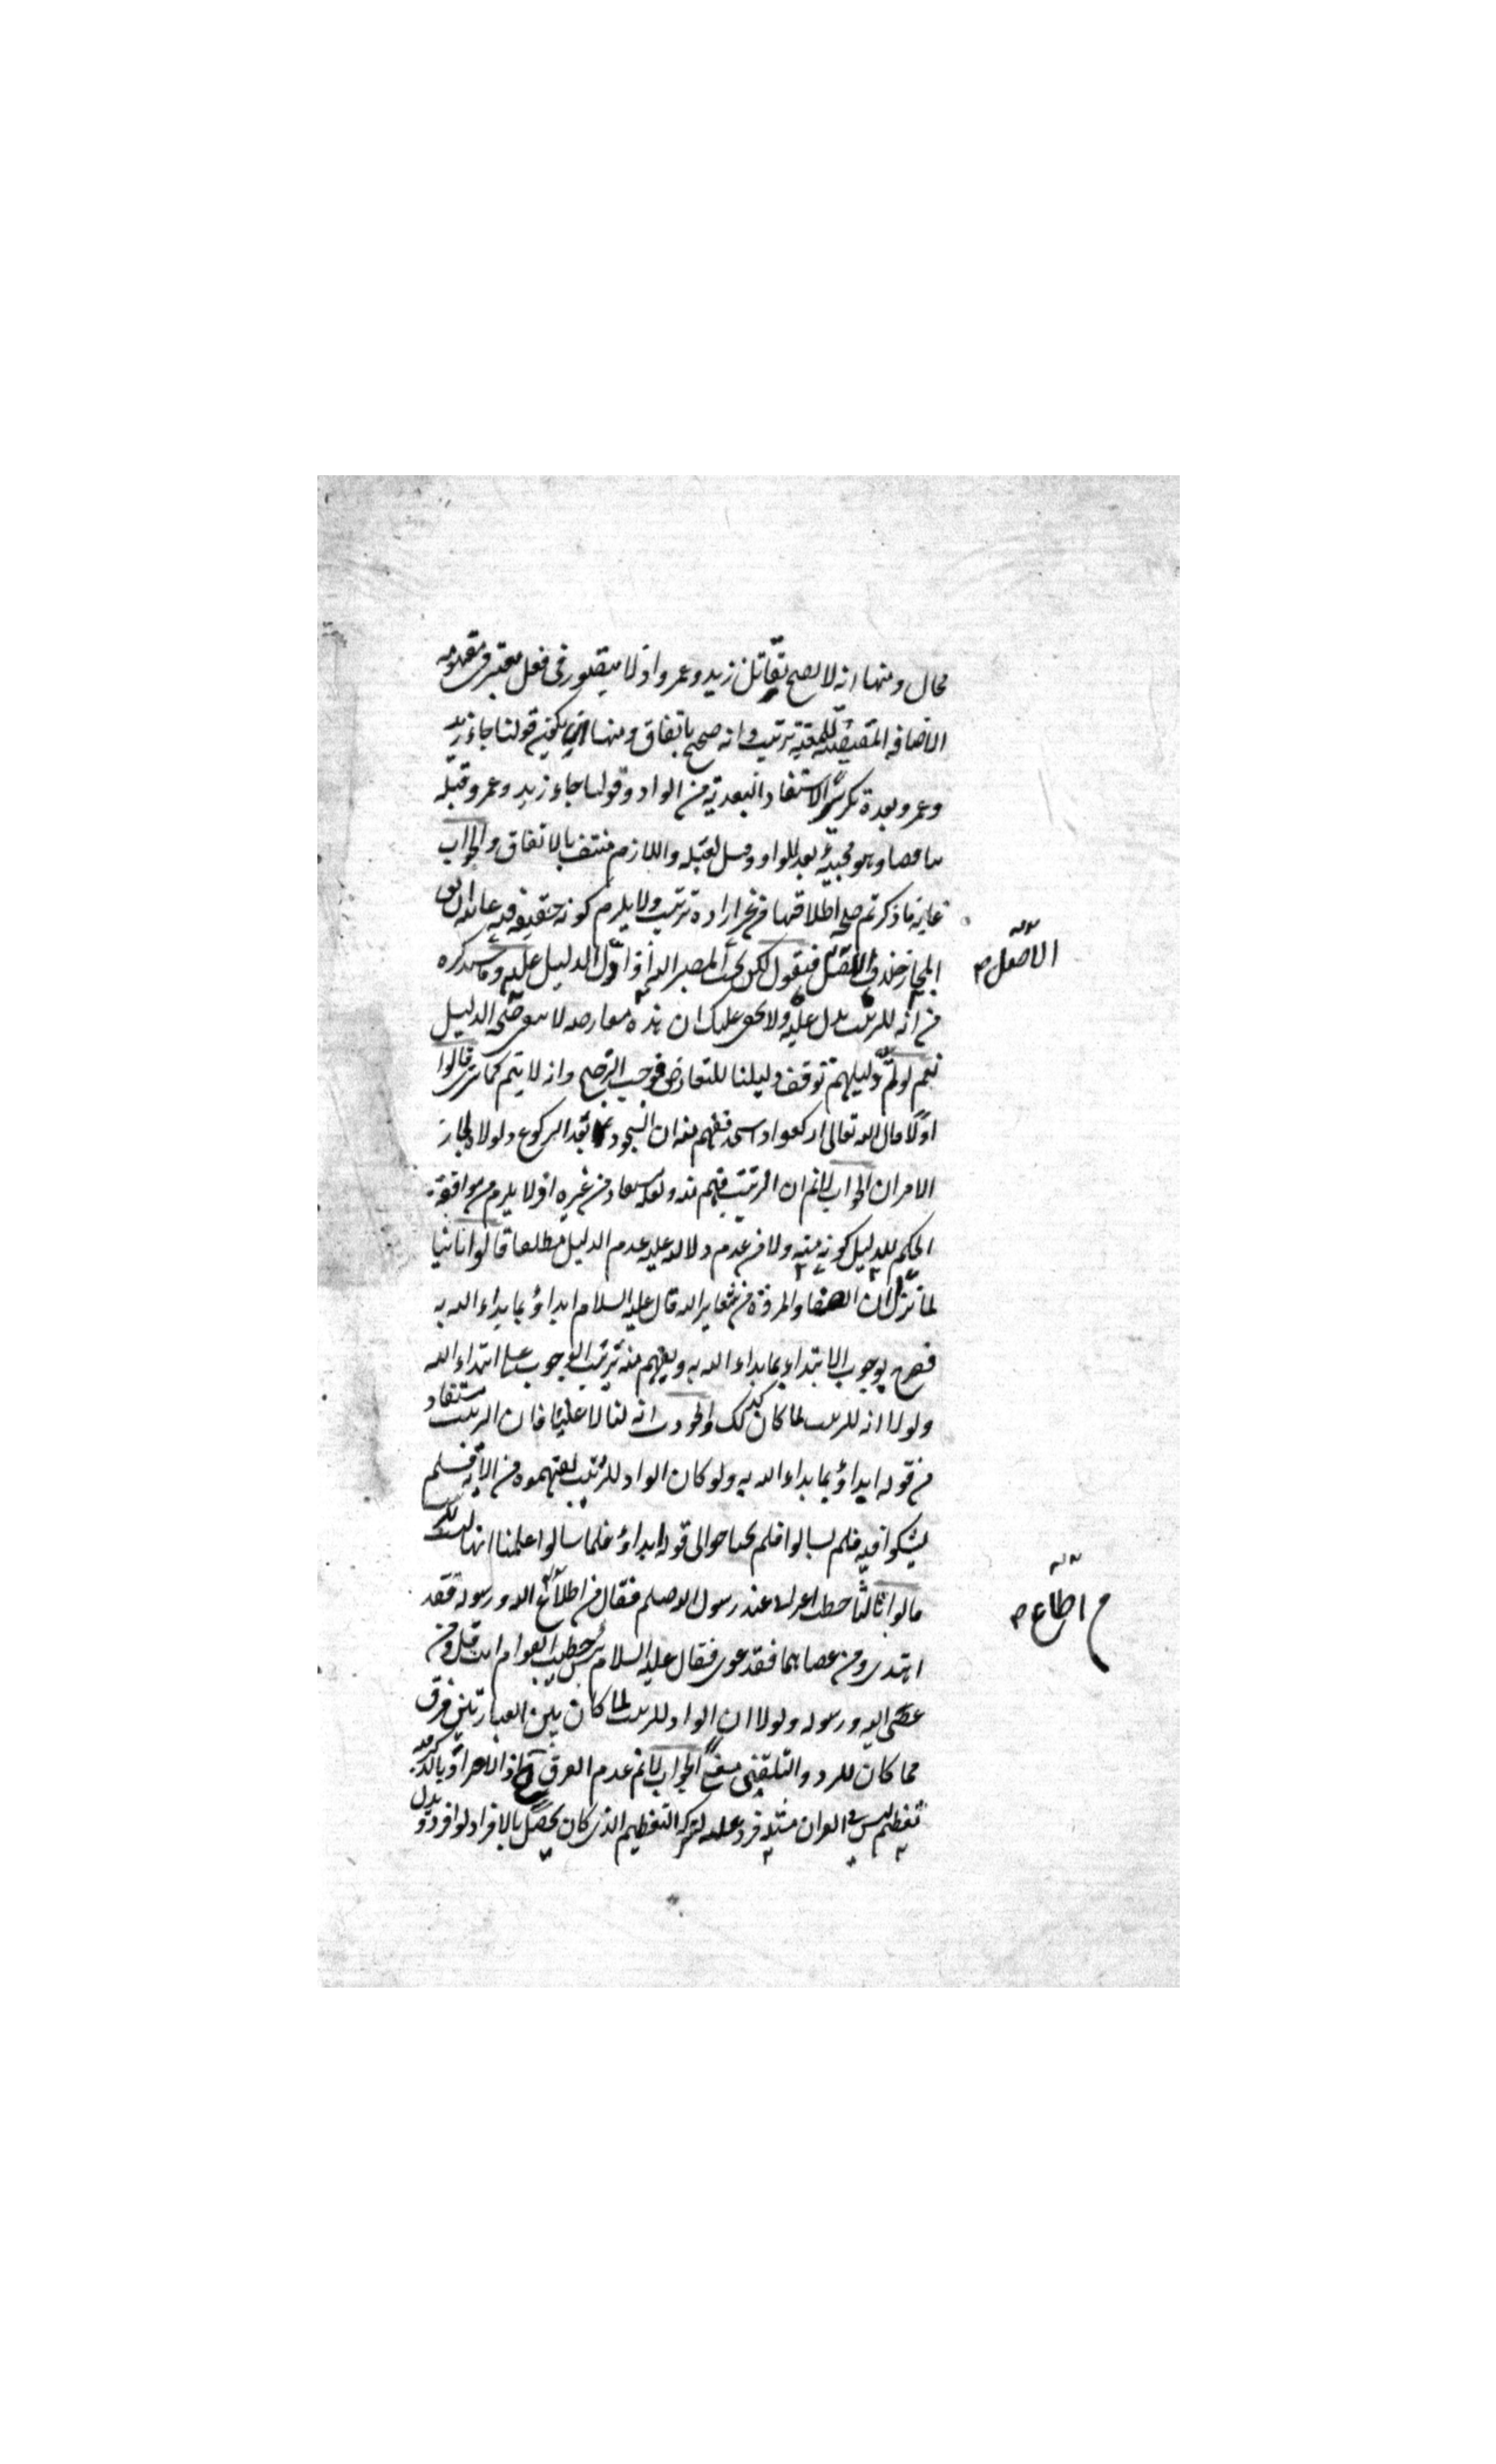 محال ومنها انه لا يصح تقاتل زيد وعمرو اذ لا يتصور فى فعل معتبر فى مفهومه
الاضافه المقتضيه للمعية ترتيب وانه صحيح باتفاق ومنها ان يكون قولنا جاء زيد
وعمرو بعده تكريرا لاستفادة البعدية من الواو وقولنا جاء زيد وعمرو قبله
تناقضا وهو مجيئه بعد للواو وقبل لقبله واللازم منتف بالاتفاق والجواب
غاية ما ذكرتم صحة اطلاقها من غير ارادة ترتيب ولا يلزم كونه حقيقة فيه
المجاز خلاف الاصل فنقول لكن يجب المصير اليه اذا دل الدليل عليه وما سنذكره
من انه للترتيب يدل عليه ولا يخفى عليك ان هذه معارضه لا صحة الدليل
نعم لو تم دليلهم توقف دليلنا للتعارض فوجب الترجيح وانه لا يتم كما ترى قالوا
اولا قال الله تعالى اركعوا واسجدوا ففهم منه ان السجود بعد الركوع ولولاه لجاز
الامران الجواب لانم ان الترتيب فهم منه ولعله مستفاد من غيره اذ لا يلزم من موافقة
الحكم للدليل كونه منه ولا من عدم دلالته عليه عدم الدليل مطلقا قالوا ثانيا
لما نزل ان الصفا والمروة من شعاير الله قال عليه السلام ابداؤ بما بداء الله به
فصرح بوجوب الابتداء بما بداء الله به ويفهم منه ترتيب الوجوب على ابتداء الله
ولولا انه للترتيب لما كان كذلك والجواب انه لنا لا علينا فان الترتيب مستفاد
من قوله ابداؤ بما بداء الله به ولو كان الواو للترتيب لفهموه من الآية فلم
يشكوا فيه فلم يسالوا فلم يحتاجوا الى قوله ابداؤ فلما سالوا علمنا انها ليست
قالوا ثالثا خطب اعرابى عند رسول الله صلعم فقال من اطاع الله ورسوله فقد
اهتدى ومن عصاهما فقد غوى فقال عليه السلام بئس خطيب القوم انت قل ومن
عصى الله ورسوله ولولا ان الواو للترتيب لما كان بين العبارتين فرق
فما كان للرد والتلقين معنى الجواب لانم عدم الفرق اذ الافراد بالذكر فيه
تعظيم ليس فى القران مثله فرد عليه لتركه التعظيم الذى كان يحصل بالافراد لو افرد
الاصل صح
اطاع صح